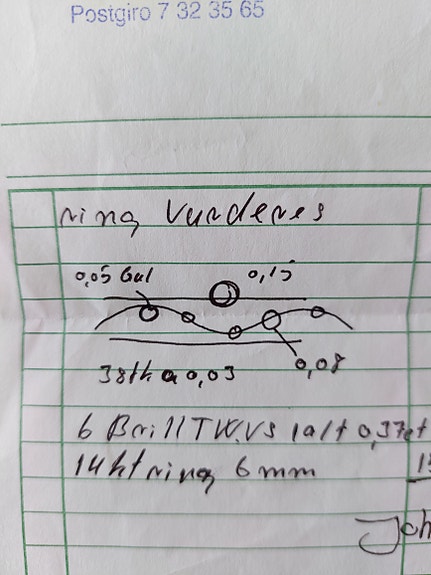 Postgiro 7 32 35 65
ring Vurderes
0,05 Gul 0,15
3 Stk a 0,03 0,08
6 Brill TW.VS ialt 0,37ct
14 kt ring 6 mm
Joh